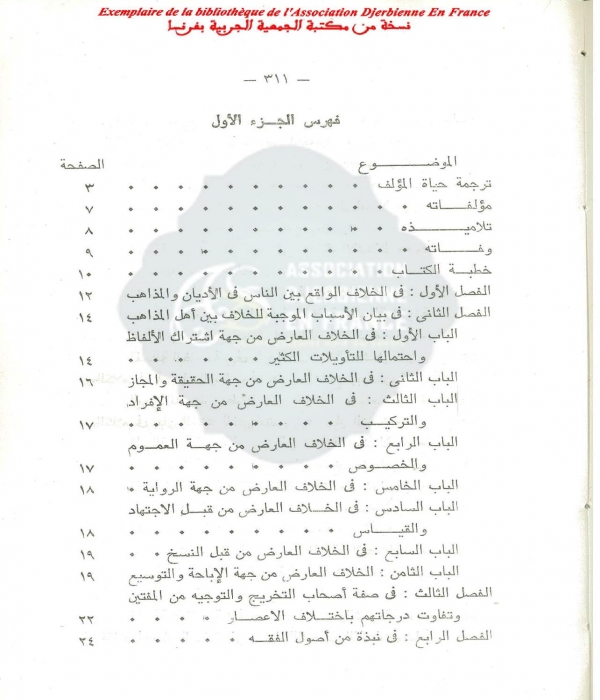 Exemplaire de la bibliothèque de l'Association Djerbienne En France
نسخة من مكتبة الجمعية الجربية بفرنسا
— ٣١١ —
فهرس الجزء الأول
الموضوع الصفحة
ترجمة حياة المؤلف ٣
مؤلفاته ٧
تلاميذه ٨
وفاته ٩
خطبة الكتاب ١٠
الفصل الأول : فى الخلاف الواقع بين الناس فى الأديان والمذاهب ١٢
الفصل الثانى : فى بيان الأسباب الموجبة للخلاف بين أهل المذاهب ١٤
الباب الأول : فى الخلاف العارض من جهة اشتراك الألفاظ
واحتمالها للتأويلات الكثير ١٤
الباب الثانى : فى الخلاف العارض من جهة الحقيقة والمجاز ١٦
الباب الثالث : فى الخلاف العارض من جهة الإفراد
والتركيب ١٧
الباب الرابع : فى الخلاف العارض من جهة العموم
والخصوص ١٧
الباب الخامس : فى الخلاف العارض من جهة الرواية ١٨
الباب السادس : فى الخلاف العارض من قبل الاجتهاد
والقياس ١٨
الباب السابع : فى الخلاف العارض من قبل النسخ ١٩
الباب الثامن : فى الخلاف العارض من جهة الإباحة والتوسيع ١٩
الفصل الثالث : فى صفة أصحاب التخريج والتوجيه من المفتين
وتفاوت درجاتهم باختلاف الاعصار ٢٢
الفصل الرابع : فى نبذة من أصول الفقه ٢٤
ASSOCIATION
DJERBIENNE
EN FRANCE